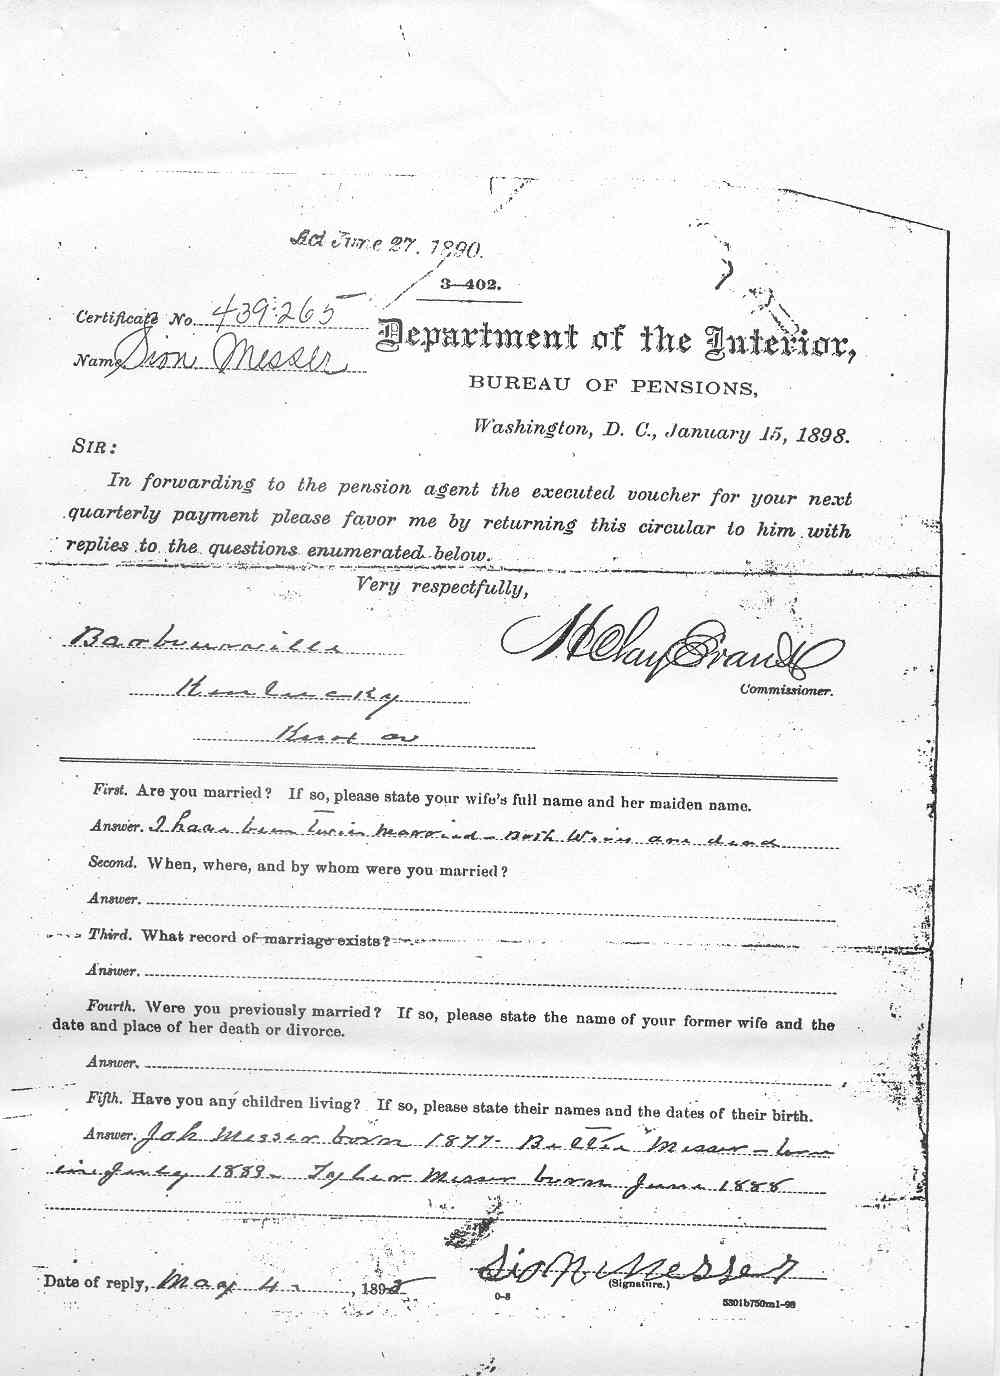 Act June 27, 1890.
3—402.
Certificate No. 439.265
Department of the Interior,
Name, Sion Messer
BUREAU OF PENSIONS,
Washington, D. C., January 15, 1898.
SIR:
In forwarding to the pension agent the executed voucher for your next
quarterly payment please favor me by returning this circular to him with
replies to the questions enumerated below.
Very respectfully,
H Clay Evans
Commissioner.
Barbourville
Kentucky
Knox co
First. Are you married? If so, please state your wife's full name and her maiden name.
Answer. I have been twice married - Both Wives are dead
Second. When, where, and by whom were you married?
Answer.
Third. What record of marriage exists?
Answer.
Fourth. Were you previously married? If so, please state the name of your former wife and the
date and place of her death or divorce.
Answer.
Fifth. Have you any children living? If so, please state their names and the dates of their birth.
Answer. Joh Messer born 1877- Bettie Messer - born
in July 1883- Tyler Messer born June 1888
Date of reply, May 4, 1898
Sion Messer
(Signature.)
0-8
5301b750m1-98